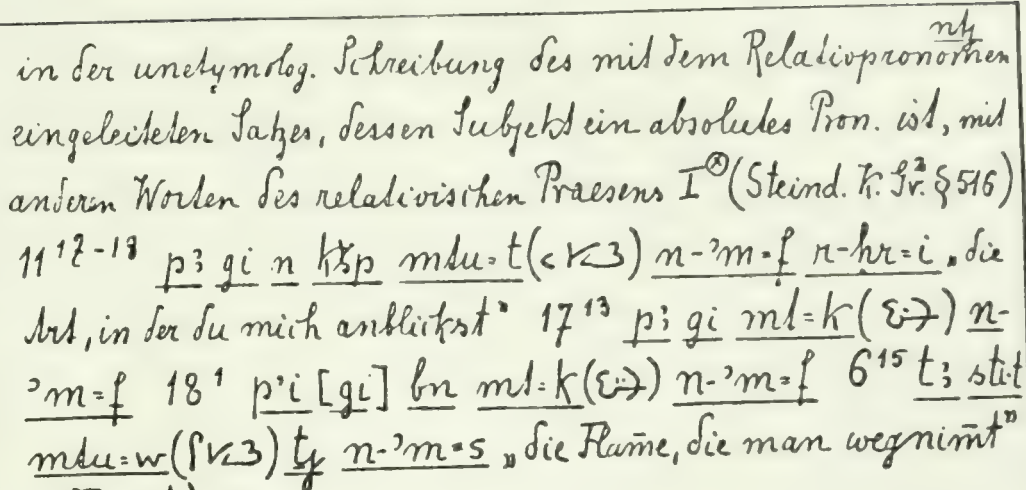 ntj
in der unetymolog. Schreibung des mit dem Relativpronomen
eingeleiteten Satzes, dessen Subjekt ein absolutes Pron. ist, mit
anderen Worten des relativischen Praesens I ⊗ (Steind. K. Gr.² § 516)
11 17-18 pꜣ gi n kšp mtu=t ( ) n-ꜣm=f r-ḥr=i „die
Art, in der du mich anblickst" 17 13 pꜣ gi mt=k ( ) n-
ꜣm=f 18 1 pꜣi [gi] bn mt=k ( ) n-ꜣm=f 6 15 tꜣ sti·t
mtu=w ( ) tj n-ꜣm=s „die Flam̄e, die man wegnim̄t"